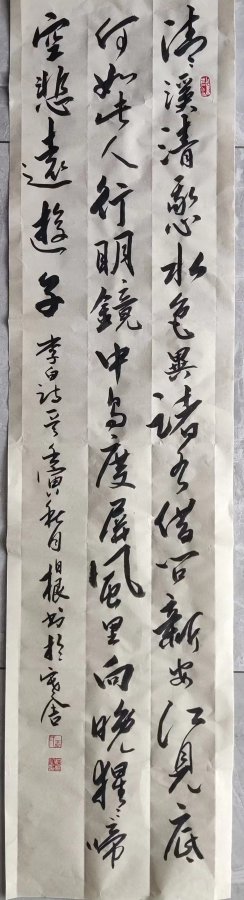 清溪清我心水色異諸水借问新安江見底
何如此人行明鏡中鸟度屏风里向晚猩〻啼
空悲遠遊子 李白诗 壬寅秋月 根书於寒舍